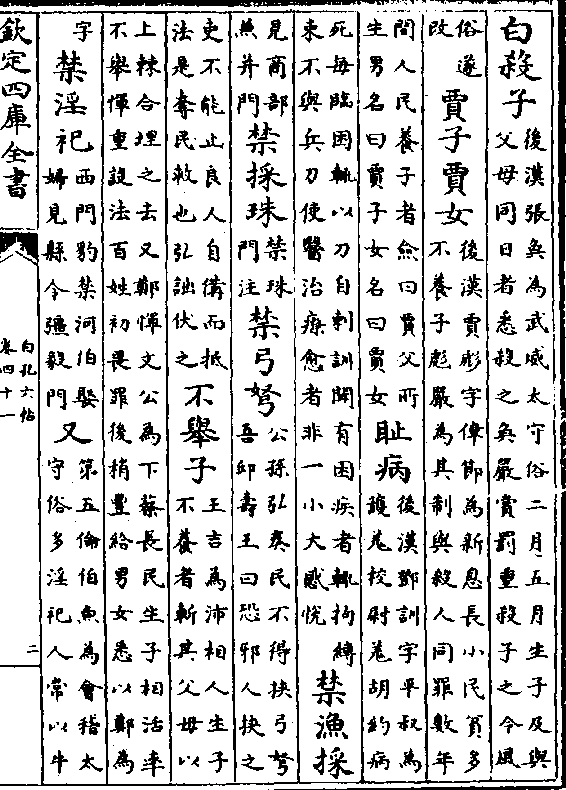 白殺子後漢張奐為武威太守俗二月五月生子及與
父母同日者悉殺之奐嚴賞罰重殺子之令風
俗遂
改
賈子賈女後漢賈彪字偉節為新息長小民貧多
不養子彪嚴為其制與殺人同罪數年
間人民養子者僉曰賈父所
生男名曰賈子女名曰賈女
耻病後漢鄧訓字平叔為
護羌校尉羌胡約病
死每臨困輒以刀自刺訓聞有困疾者輒拘縛
束不與兵刀使醫治療愈者非一小大感悅
禁漁採
見商部
無并門
禁採珠禁珠
門注
禁弓弩公孫弘奏民不得挾弓弩
吾邱壽王曰恐邪人挾之
吏不能止良人自備而抵
法是奪民救也弘詘伏之
不舉子王吉為沛相人生子
不養者斬其父母以
上棘合埋之去又鄭惲文公為下蔡長民生子相活率
不舉惲重設法百姓初畏罪後稍豐給男女悉以鄭為
字
禁淫祀西門豹禁河伯娶
婦見縣令彊毅門
又第五倫伯魚為會稽太
守俗多淫祀人常以牛
欽定四庫全書
白孔六帖
卷四十一
二